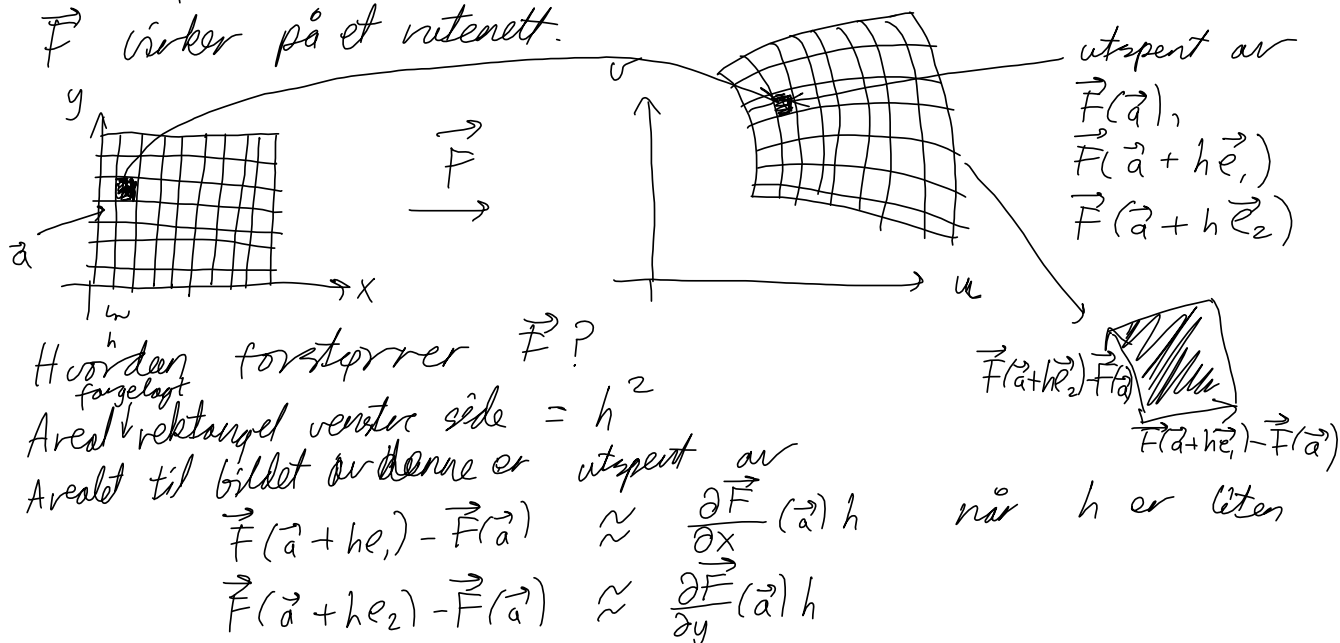 F⃗ virker på et rutenett.
y
v
F⃗
a⃗
x
h
u
utspent av
F⃗(a⃗),
F⃗(a⃗ + he⃗₁)
F⃗(a⃗ + he⃗₂)
F⃗(a⃗+he⃗₂)-F⃗(a⃗)
F⃗(a⃗+he⃗₁)-F⃗(a⃗)
Hvordan forstørrer F⃗?
fargelagt
Areal ↓ rektangel venstre side = h²
Arealet til bildet av denne er utspent av
F⃗(a⃗ + he₁) - F⃗(a⃗) ≈ ∂F⃗/∂x (a⃗) h når h er liten
F⃗(a⃗ + he₂) - F⃗(a⃗) ≈ ∂F⃗/∂y (a⃗) h